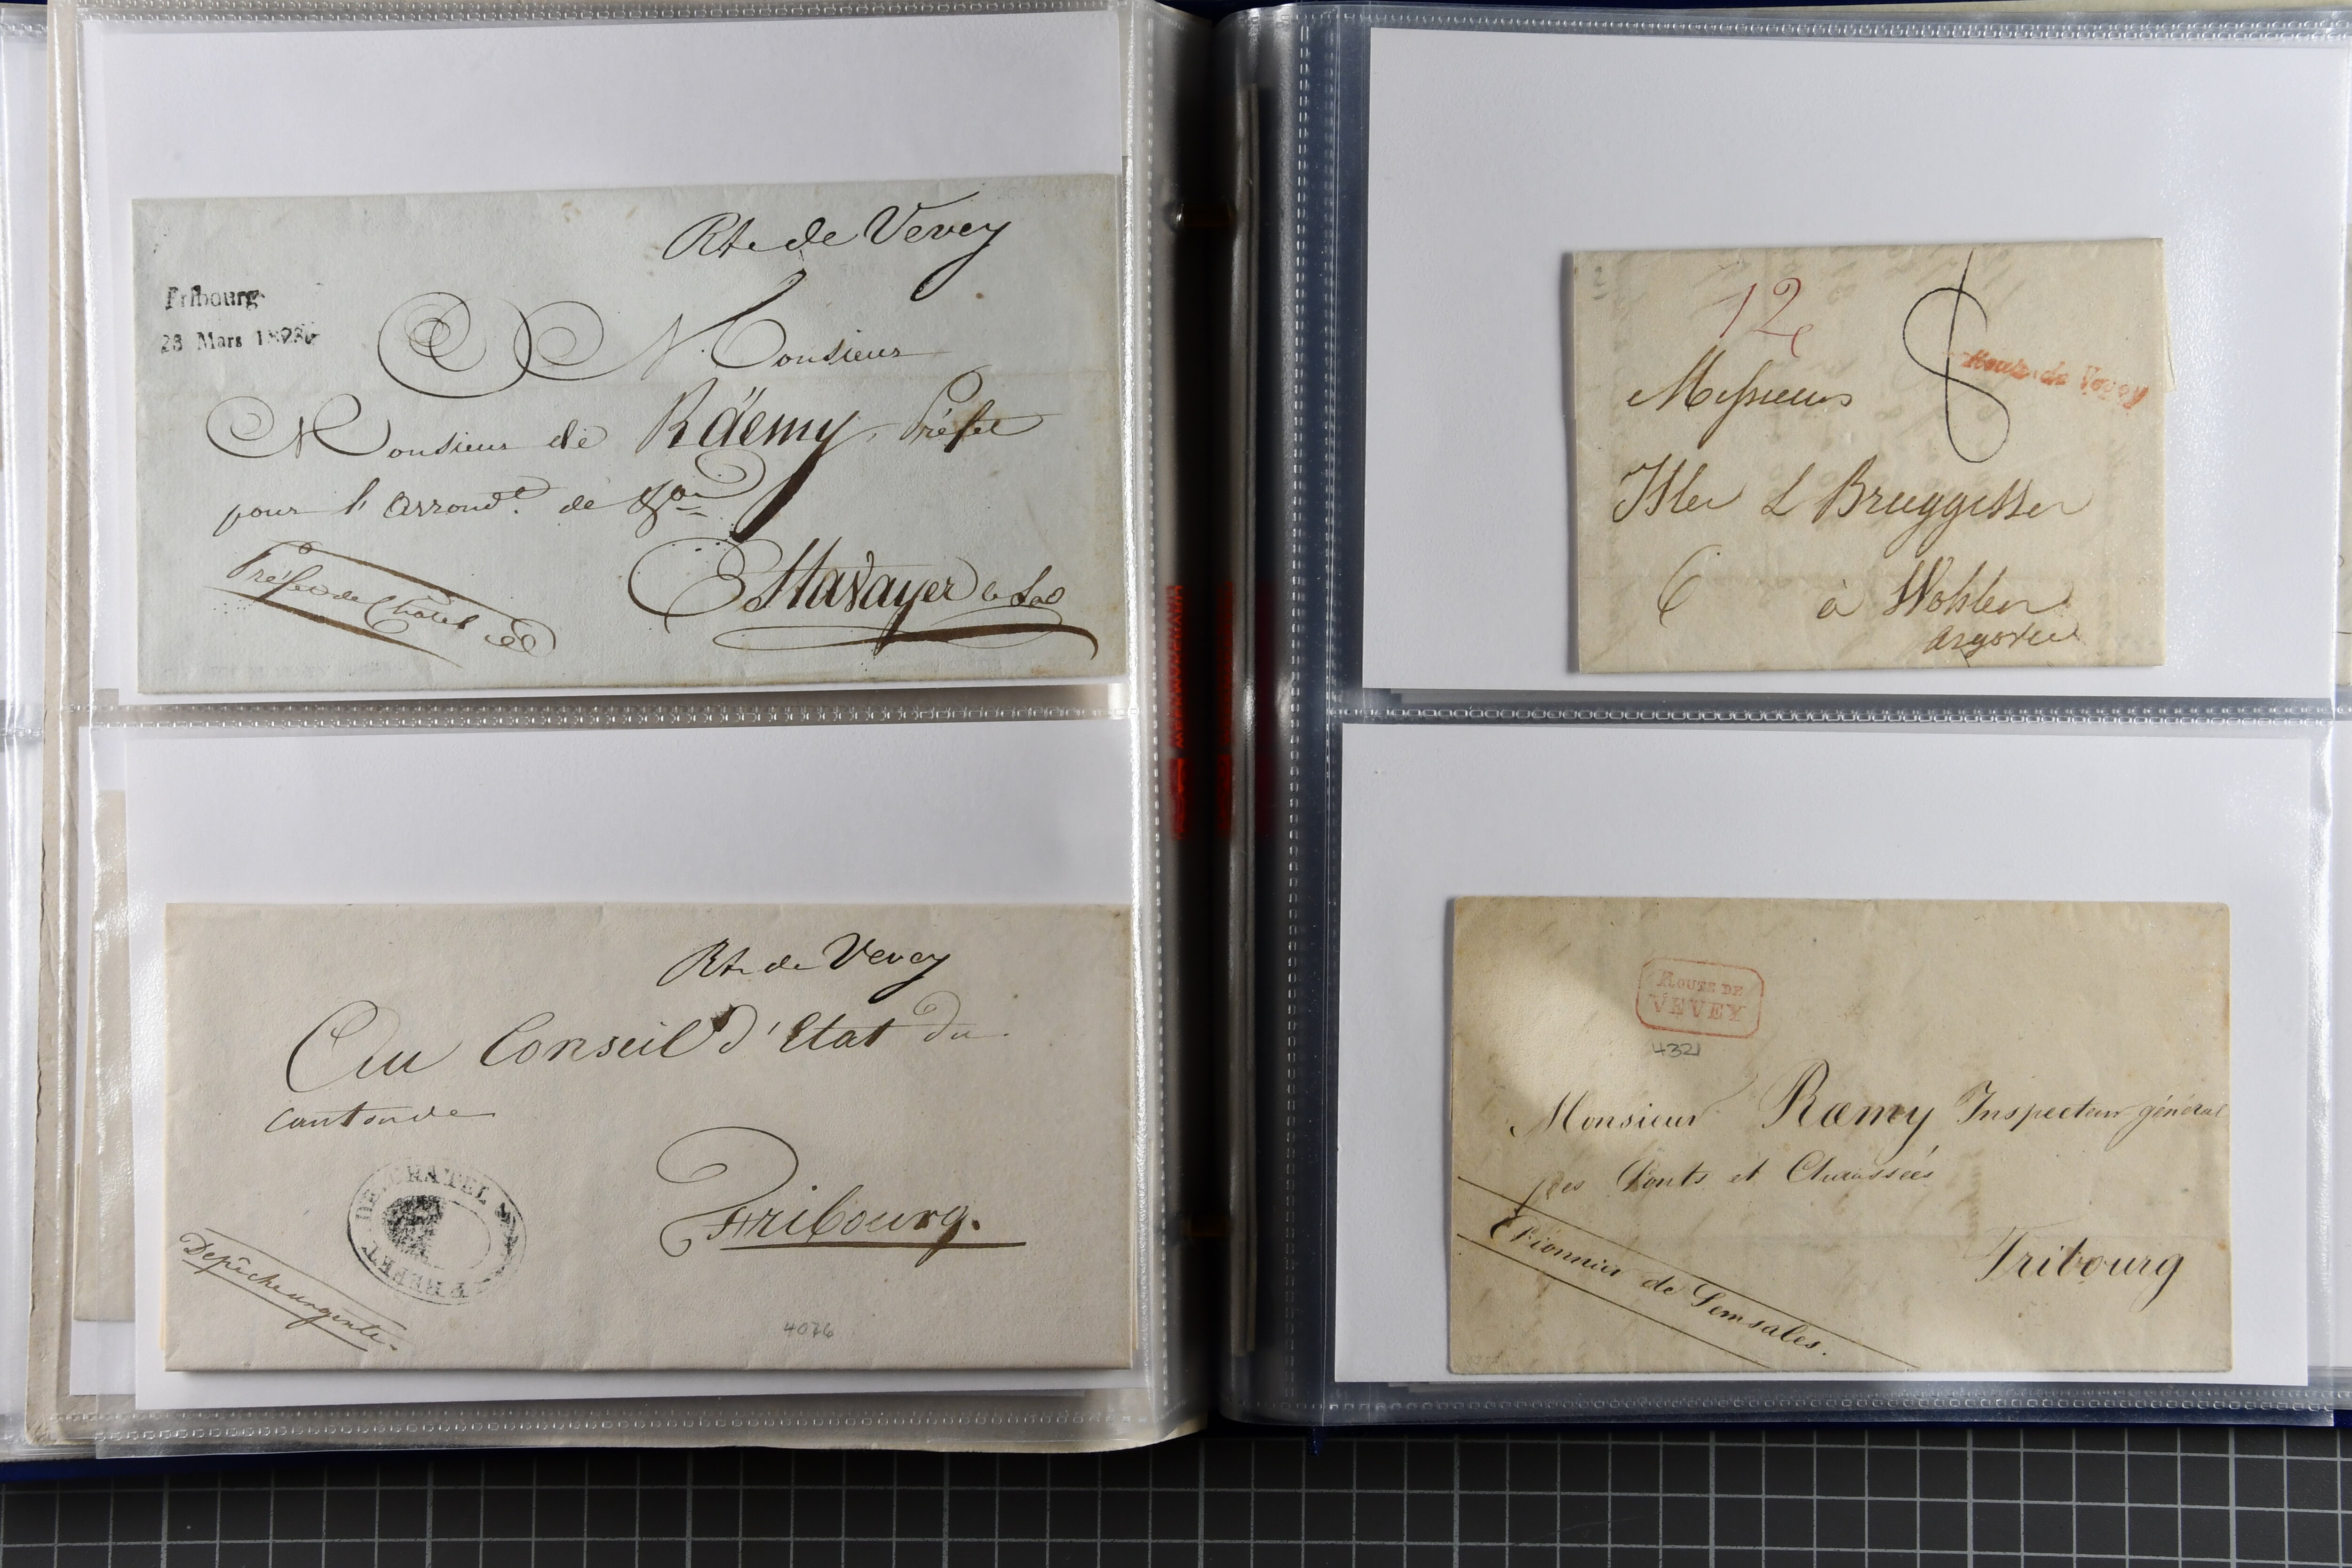 Rte de Vevey
Fribourg
23 Mars
Monsieur
Monsieur de Räemy, Préfet
pour l'Arrondt. de
Estavayer le Lac
Préfet de Châtel
Rte de Vevey
Au Conseil d'Etat du
canton de
Fribourg.
PREFET DE CHATEL
Depêche urgente.
4076
12
8
Route de Vevey
Messieurs
Isler & Brueggisser
à Wohlen
Argovie
ROUTE DE
VEVEY
4321
Monsieur Ræmy Inspecteur général
des Ponts et Chaussées
Fribourg
Pionnier de Semsales.